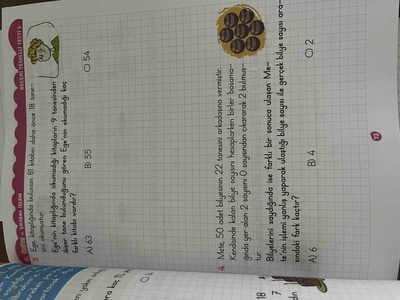 BECERİ TEMELLİ TEST 5
ÇIKARMA İŞLEMİ
3. Ege, kitaplığında bulunan 81 kitabın daha önce 18 tane-
sini okumuştur.
Ege'nin kitaplığında okumadığı kitapların 9 tanesinden
diğer tane bulunduğunu gören Ege'nin okumadığı kaç
farklı kitabı vardır?
A) 63
B) 55
C) 54
4. Mete, 50 adet bilyesinin 22 tanesini arkadaşına vermiştir.
Kendisinde kalan bilye sayısını hesaplarken birler basama-
ğında yer alan 2 sayısını 0 sayısından çıkararak 2 bulmuş-
tur.
Bilyelerini saydığında ise farklı bir sonuca ulaşan Me-
te'nin işlemi yanlış yaparak ulaştığı bilye sayısı ile gerçek bilye sayısı ara-
sındaki fark kaçtır?
A) 6
B) 4
C) 2
77